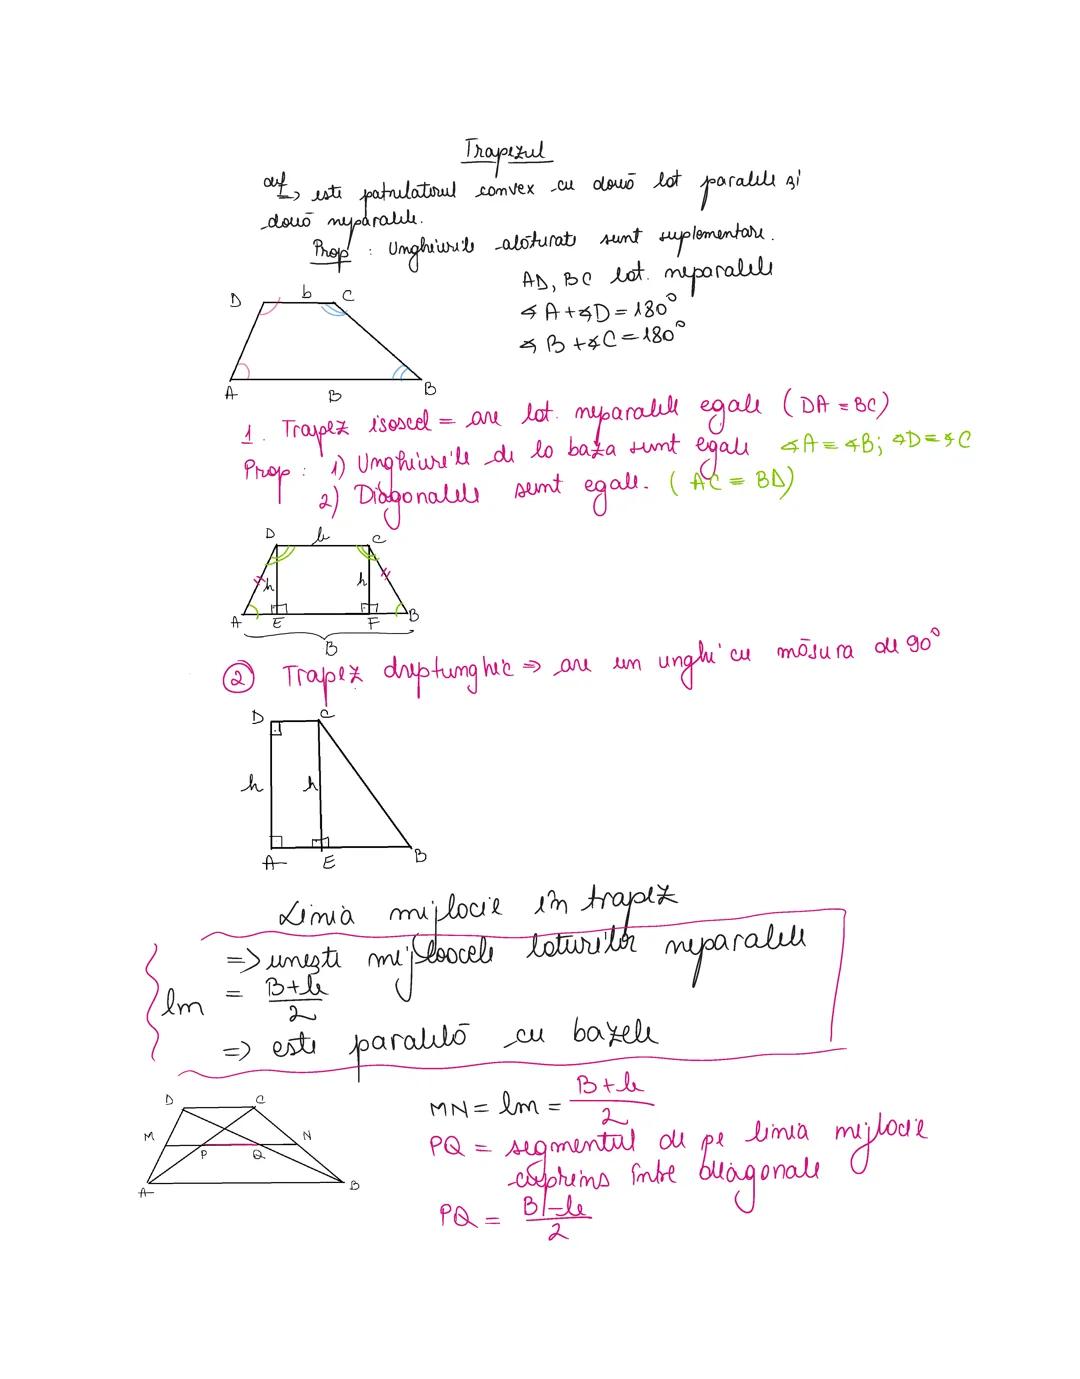 Trapezul
def => este patrulaterul convex cu două lat paralele și
două neparalele.
Prop : Unghiurile alăturate sunt suplementare.
AD, BC lat. neparalele
∢A+∢D=180°
∢B+∢C=180°
D b C
A B B
1. Trapez isoscel = are lat. neparalele egale (DA≡BC)
Prop: 1) Unghiurile de la baza sunt egale ∢A≡∢B; ∢D≡∢C
2) Diagonalele sunt egale. (AC≡BD)
D b C
h h
A E F B
B
2 Trapez dreptunghic => are un unghi cu măsura de 90°
D C
h h
A E B
Linia mijlocie în trapez
=> unește mijloacele laturilor neparalele
lm = B+b/2
=> este paralelă cu bazele
D C
M P Q N
A B
MN = lm = B+b/2
PQ = segmentul de pe linia mijlocie
cuprins între diagonale
PQ = B-b/2